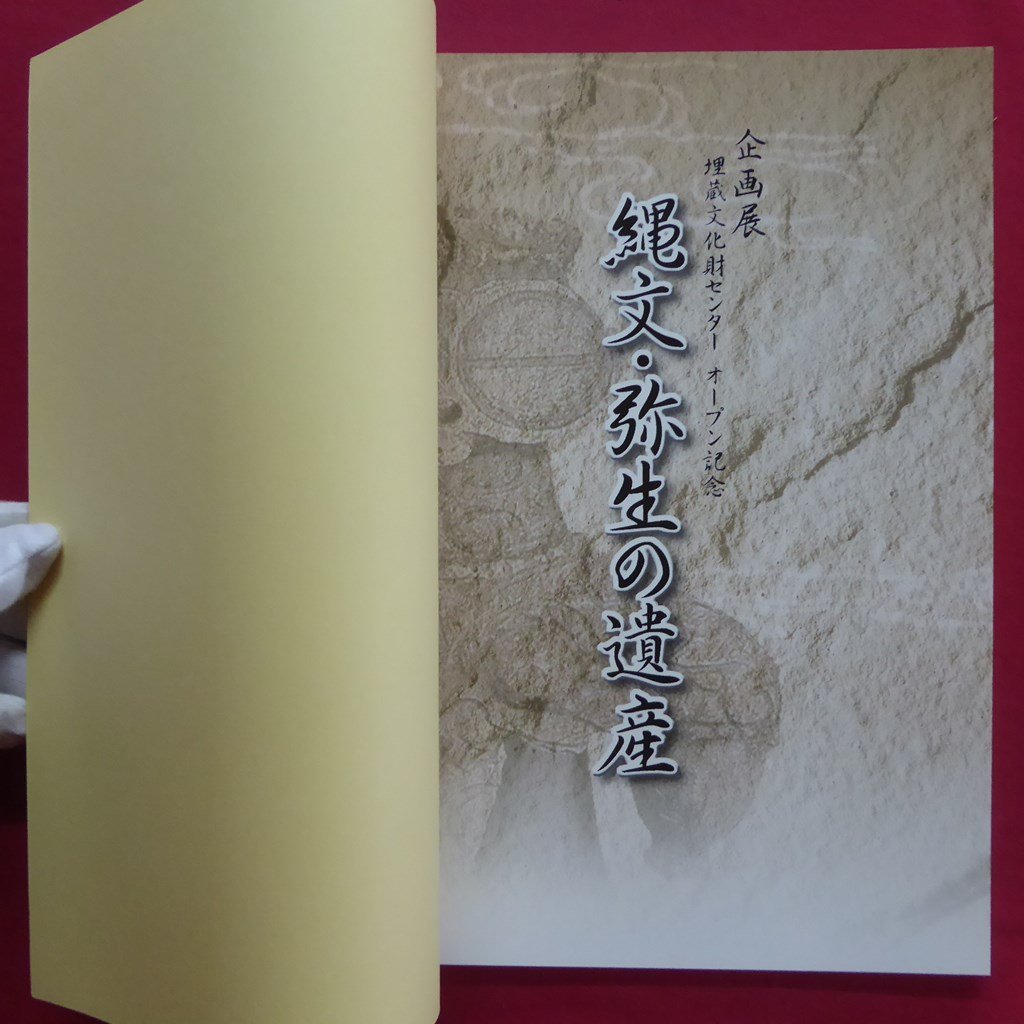 企画展
埋蔵文化財センター オープン記念
縄文・弥生の遺産